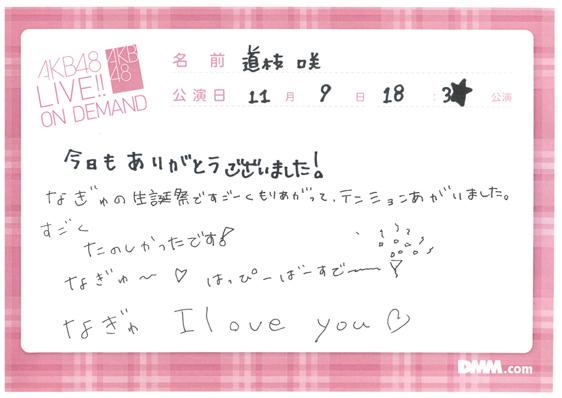 AKB48
LIVE!!
ON DEMAND
AKB
48
名前 道枝 咲
公演日 11 月 9 日 18 : 3★ 公演
今日も ありがとうございました!
なぎゅの生誕祭ですごーくもりあがって、テンションあがりました。
すごく
たのしかったです!
なぎゅ〜 ♡ はっぴーばーすでー
なぎゅ I love you ♡
DMM.com